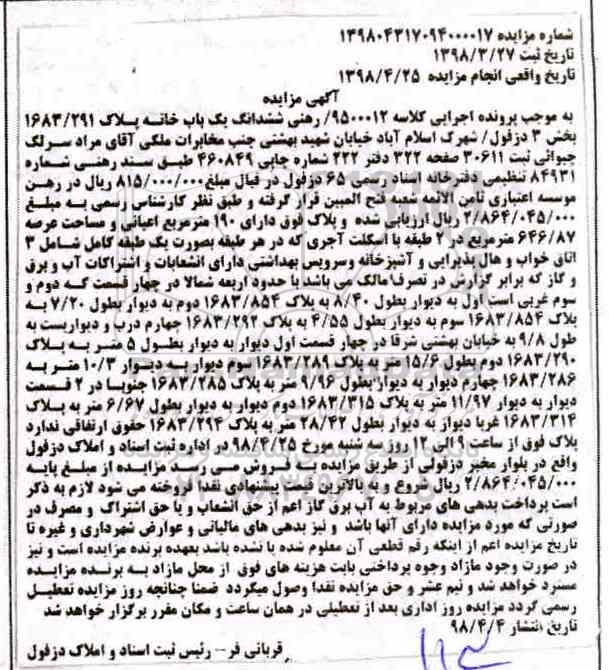 شماره مزایده ۱۳۹۸۰۴۳۱۷۰۹۴۰۰۰۰۱۷
تاریخ ثبت ۱۳۹۸/۳/۲۷
تاریخ واقعی انجام مزایده ۱۳۹۸/۴/۲۵
آگهی مزایده
به موجب پرونده اجرایی کلاسه ۹۵۰۰۰۱۲/ رهنی ششدانگ یک باب خانه پلاک ۱۶۸۳/۲۹۱
بخش ۳ دزفول/ شهرک اسلام آباد خیابان شهید بهشتی جنب مخابرات ملکی آقای مراد سرلک
چیوائی ثبت ۳۰۶۱۱ صفحه ۳۲۲ دفتر ۲۲۲ شماره چاپی ۴۶۰۸۴۹ طبق سند رهنی شماره
۸۴۹۳۱ تنظیمی دفترخانه اسناد رسمی ۶۵ دزفول در قبال مبلغ ۸۱۵/۰۰۰/۰۰۰ ریال در رهن
موسسه اعتباری ثامن الائمه شعبه فتح المبین قرار گرفته و طبق نظر کارشناس رسمی به مبلغ
۲/۸۶۴/۰۴۵/۰۰۰ ریال ارزیابی شده و پلاک فوق دارای ۱۹۰ مترمربع اعیانی و مساحت عرصه
۶۴۶/۸۷ مترمربع در ۲ طبقه با اسکلت آجری که در هر طبقه بصورت یک طبقه کامل شامل ۳
اتاق خواب و هال پذیرایی و آشپزخانه وسرویس بهداشتی دارای انشعابات و اشتراکات آب و برق
و گاز که برابر گزارش در تصرف مالک می باشد با حدود اربعه شمالا در چهار قسمت که دوم و
سوم غربی است اول به دیوار بطول ۸/۴۰ به پلاک ۱۶۸۳/۸۵۴ دوم به دیوار بطول ۷/۲۰ به
پلاک ۱۶۸۳/۸۵۴ سوم به دیوار بطول ۴/۵۵ به پلاک ۱۶۸۳/۲۹۲ چهارم درب و دیواریست به
طول ۹/۸ به خیابان بهشتی شرقا در چهار قسمت اول دیوار به دیوار بطول ۵ متر به پلاک
۱۶۸۳/۲۹۰ دوم بطول ۱۵/۶ متر به پلاک ۱۶۸۳/۲۸۹ سوم دیوار به دیوار ۱۰/۳ متر به
۱۶۸۳/۲۸۶ چهارم دیوار به دیوار بطول ۹/۹۶ متر به پلاک ۱۶۸۳/۲۸۵ جنوبا در ۲ قسمت
دیوار به دیوار ۱۱/۹۷ متر به پلاک ۱۶۸۳/۳۱۵ دوم دیوار به دیوار بطول ۶/۶۷ متر به پلاک
۱۶۸۳/۳۱۴ غربا دیوار به دیوار بطول ۲۸/۴۲ متر به پلاک ۱۶۸۳/۲۹۴ حقوق ارتفاقی ندارد
پلاک فوق از ساعت ۹ الی ۱۲ روز سه شنبه مورخ ۹۸/۴/۲۵ در اداره ثبت اسناد و املاک دزفول
واقع در بلوار مخبر دزفولی از طریق مزایده به فروش می رسد مزایده از مبلغ پایه
۲/۸۶۴/۰۴۵/۰۰۰ ریال شروع و به بالاترین قیمت پیشنهادی نقدا فروخته می شود لازم به ذکر
است پرداخت بدهی های مربوط به آب برق گاز اعم از حق انشعاب و یا حق اشتراک و مصرف در
صورتی که مورد مزایده دارای آنها باشد و نیز بدهی های مالیاتی و عوارض شهرداری و غیره تا
تاریخ مزایده اعم از اینکه رقم قطعی آن معلوم شده یا نشده باشد بعهده برنده مزایده است و نیز
در صورت وجود مازاد وجوه پرداختی بابت هزینه های فوق از محل مازاد به برنده مزایده
مسترد خواهد شد و نیم عشر و حق مزایده نقدا وصول میگردد ضمنا چنانچه روز مزایده تعطیل
رسمی گردد مزایده روز اداری بعد از تعطیلی در همان ساعت و مکان مقرر برگزار خواهد شد
تاریخ انتشار ۹۸/۴/۴
قربانی فر- رئیس ثبت اسناد و املاک دزفول